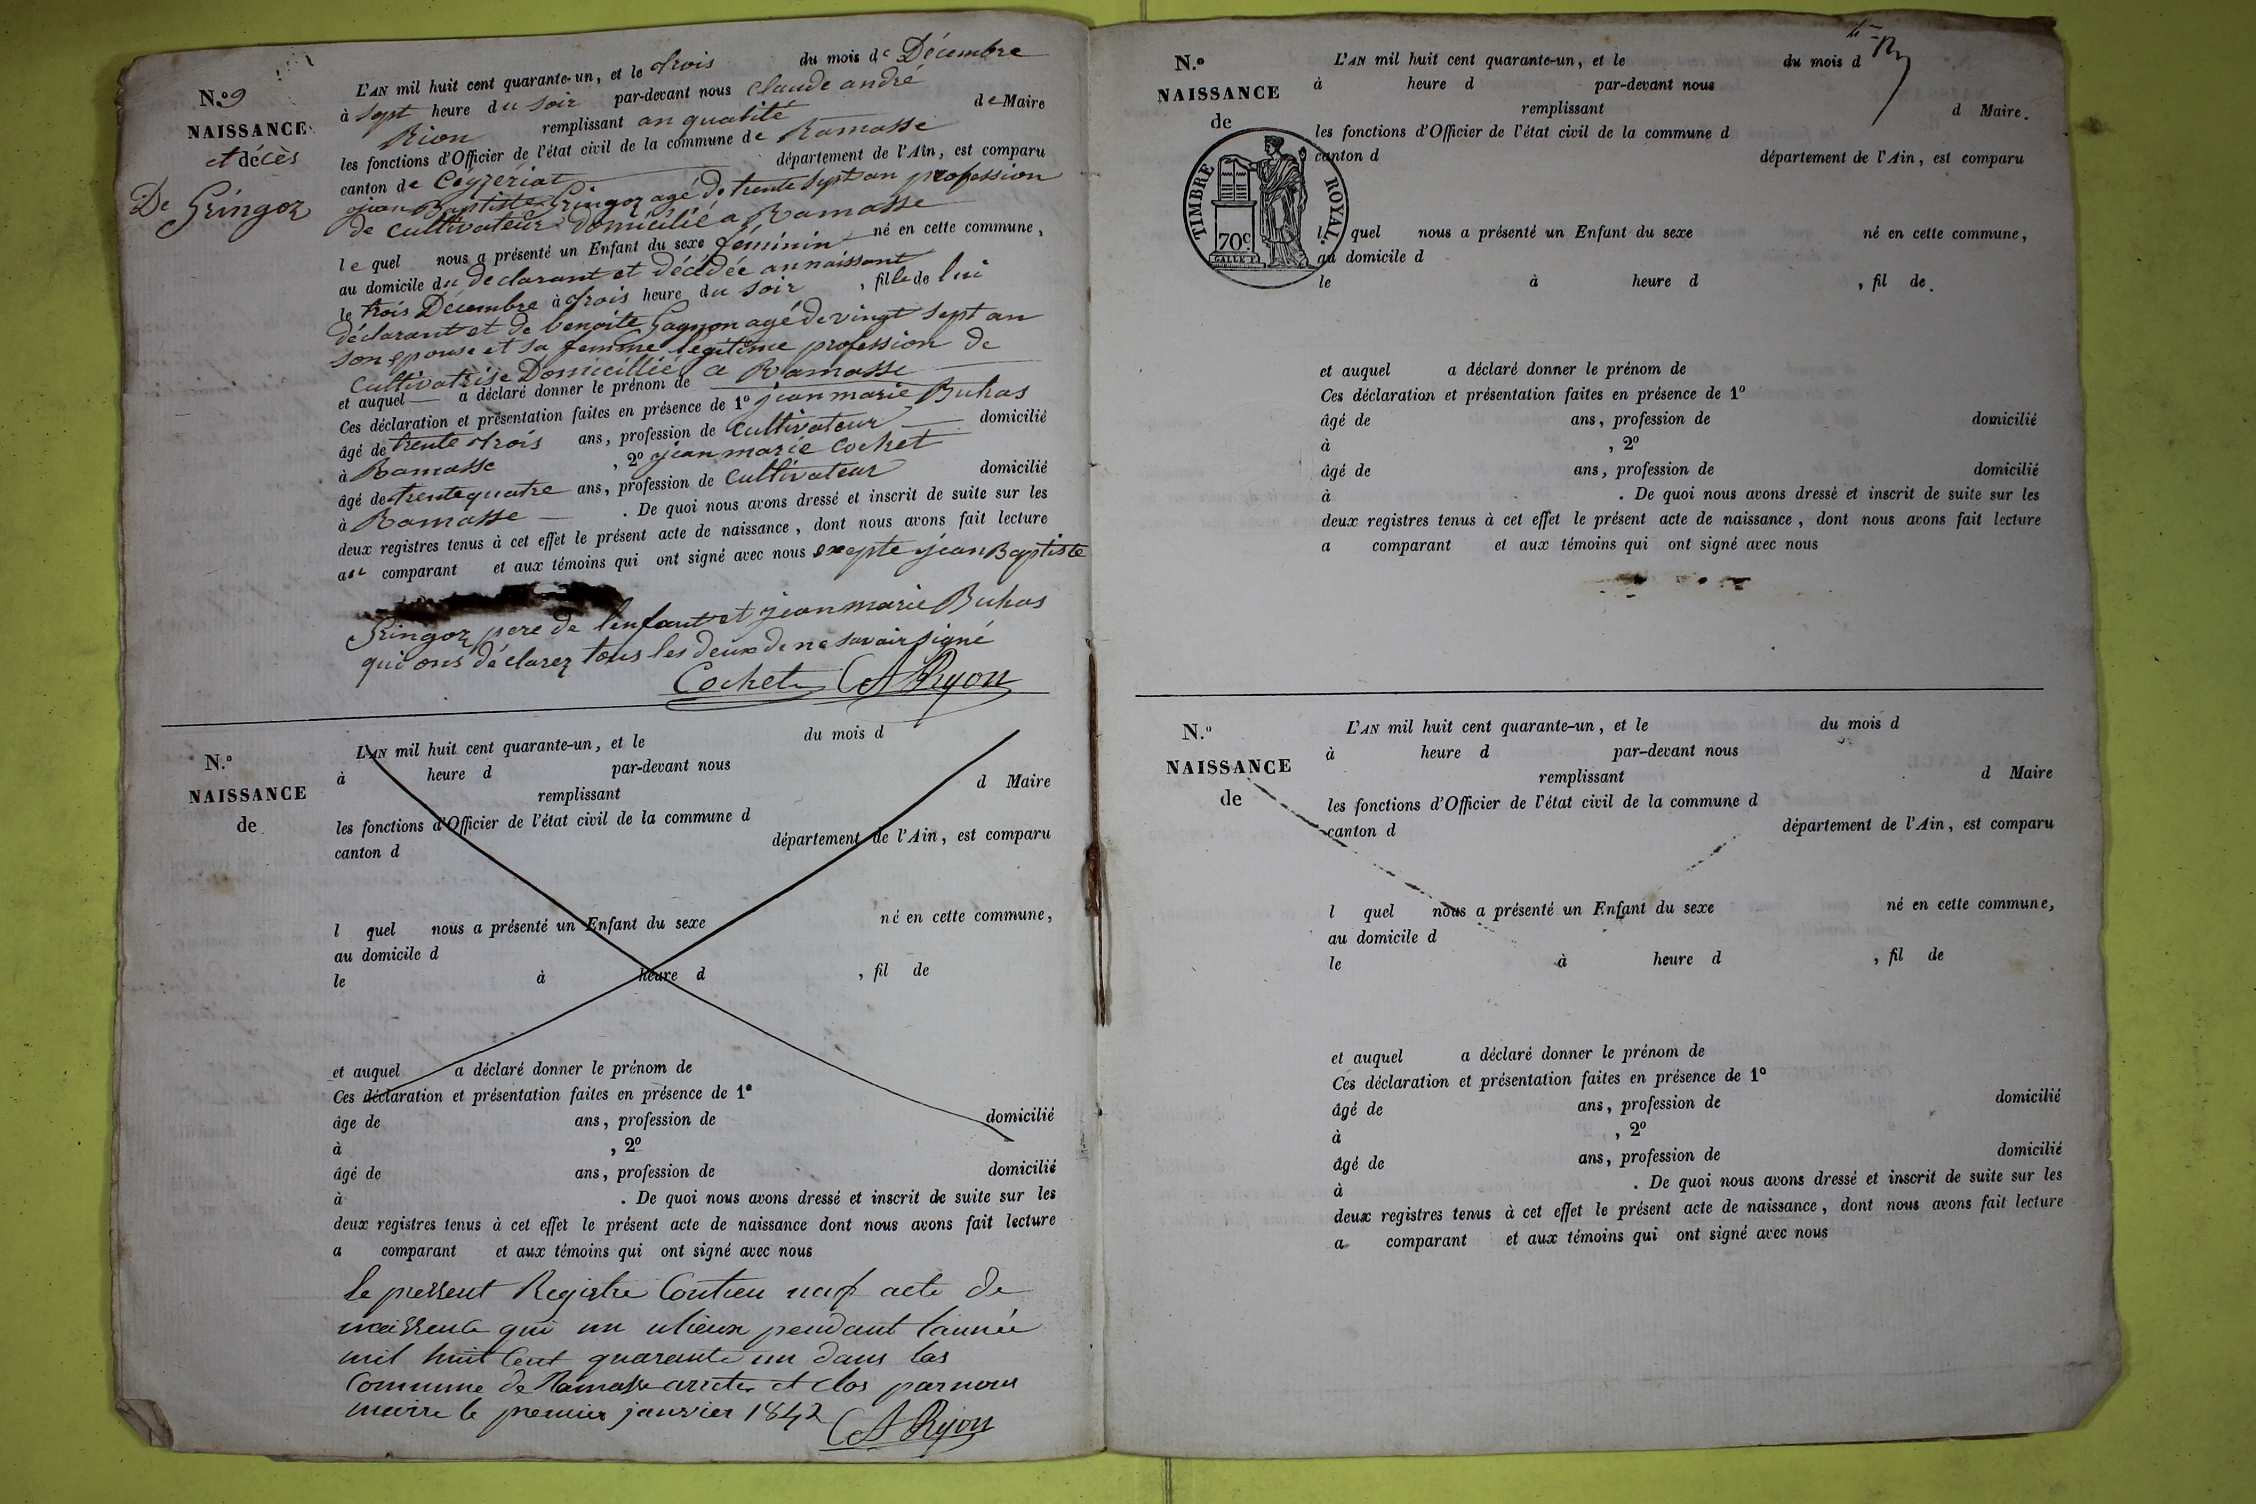 N.o 9
NAISSANCE
et décès
De Gringoz
L'AN mil huit cent quarante-un, et le trois du mois de Décembre
à sept heure du soir par-devant nous claude andré
Rion remplissant an qualité de Maire
les fonctions d'Officier de l'état civil de la commune de Ramasse
canton de Ceyzériat département de l'Ain, est comparu
jean Baptiste Gringoz agé de trente sept an profession
de cultivateur domicilié a Ramasse
le quel nous a présenté un Enfant du sexe féminin né en cette commune,
au domicile du declarant et décédée annaissant
le trois Décembre à trois heure du soir, fille de lui
déclarant et de benoite Gagnon agé de vingt sept an
son epouse et sa femme légitime profession de
cultivatrise Domicillié a Ramasse
et auquel a déclaré donner le prénom de
Ces déclaration et présentation faites en présence de 1o jean marie Buhas
âgé de trente trois ans, profession de cultivateur domicilié
à Ramasse, 2o jean marie Cochet
âgé de trente quatre ans, profession de cultivateur domicilié
à Ramasse. De quoi nous avons dressé et inscrit de suite sur les
deux registres tenus à cet effet le présent acte de naissance, dont nous avons fait lecture
au comparant et aux témoins qui ont signé avec nous exepte jean Baptiste
Gringoz pere de lenfant et jean marie Buhas
qui ons déclarez tous les deux de ne savair signé
Cochet CA Ryon
N.o
NAISSANCE
de
L'AN mil huit cent quarante-un, et le du mois d
à heure d par-devant nous
remplissant d Maire
les fonctions d'Officier de l'état civil de la commune d
canton d département de l'Ain, est comparu
l quel nous a présenté un Enfant du sexe né en cette commune,
au domicile d
le à heure d, fil de
et auquel a déclaré donner le prénom de
Ces déclaration et présentation faites en présence de 1o
âge de ans, profession de domicilié
à, 2o
âgé de ans, profession de domicilié
à. De quoi nous avons dressé et inscrit de suite sur les
deux registres tenus à cet effet le présent acte de naissance dont nous avons fait lecture
a comparant et aux témoins qui ont signé avec nous
le pressent Registre Contien neuf acte de
naissence qui on ulieux pendant lannée
mil huit Cent quarante un dans las
Commune de Ramasse arreter et clos par nous
maire le premier janvier 1842 CA Ryon
N.o
NAISSANCE
de
TIMBRE ROYAL.
70c
L'AN mil huit cent quarante-un, et le du mois d
à heure d par-devant nous
remplissant d Maire.
les fonctions d'Officier de l'état civil de la commune d
canton d département de l'Ain, est comparu
l quel nous a présenté un Enfant du sexe né en cette commune,
au domicile d
le à heure d, fil de
et auquel a déclaré donner le prénom de
Ces déclaration et présentation faites en présence de 1o
âgé de ans, profession de domicilié
à, 2o
âgé de ans, profession de domicilié
à. De quoi nous avons dressé et inscrit de suite sur les
deux registres tenus à cet effet le présent acte de naissance, dont nous avons fait lecture
a comparant et aux témoins qui ont signé avec nous
N.o
NAISSANCE
de
L'AN mil huit cent quarante-un, et le du mois d
à heure d par-devant nous
remplissant d Maire
les fonctions d'Officier de l'état civil de la commune d
canton d département de l'Ain, est comparu
l quel nous a présenté un Enfant du sexe né en cette commune,
au domicile d
le à heure d, fil de
et auquel a déclaré donner le prénom de
Ces déclaration et présentation faites en présence de 1o
âgé de ans, profession de domicilié
à, 2o
âgé de ans, profession de domicilié
à. De quoi nous avons dressé et inscrit de suite sur les
deux registres tenus à cet effet le présent acte de naissance, dont nous avons fait lecture
a comparant et aux témoins qui ont signé avec nous